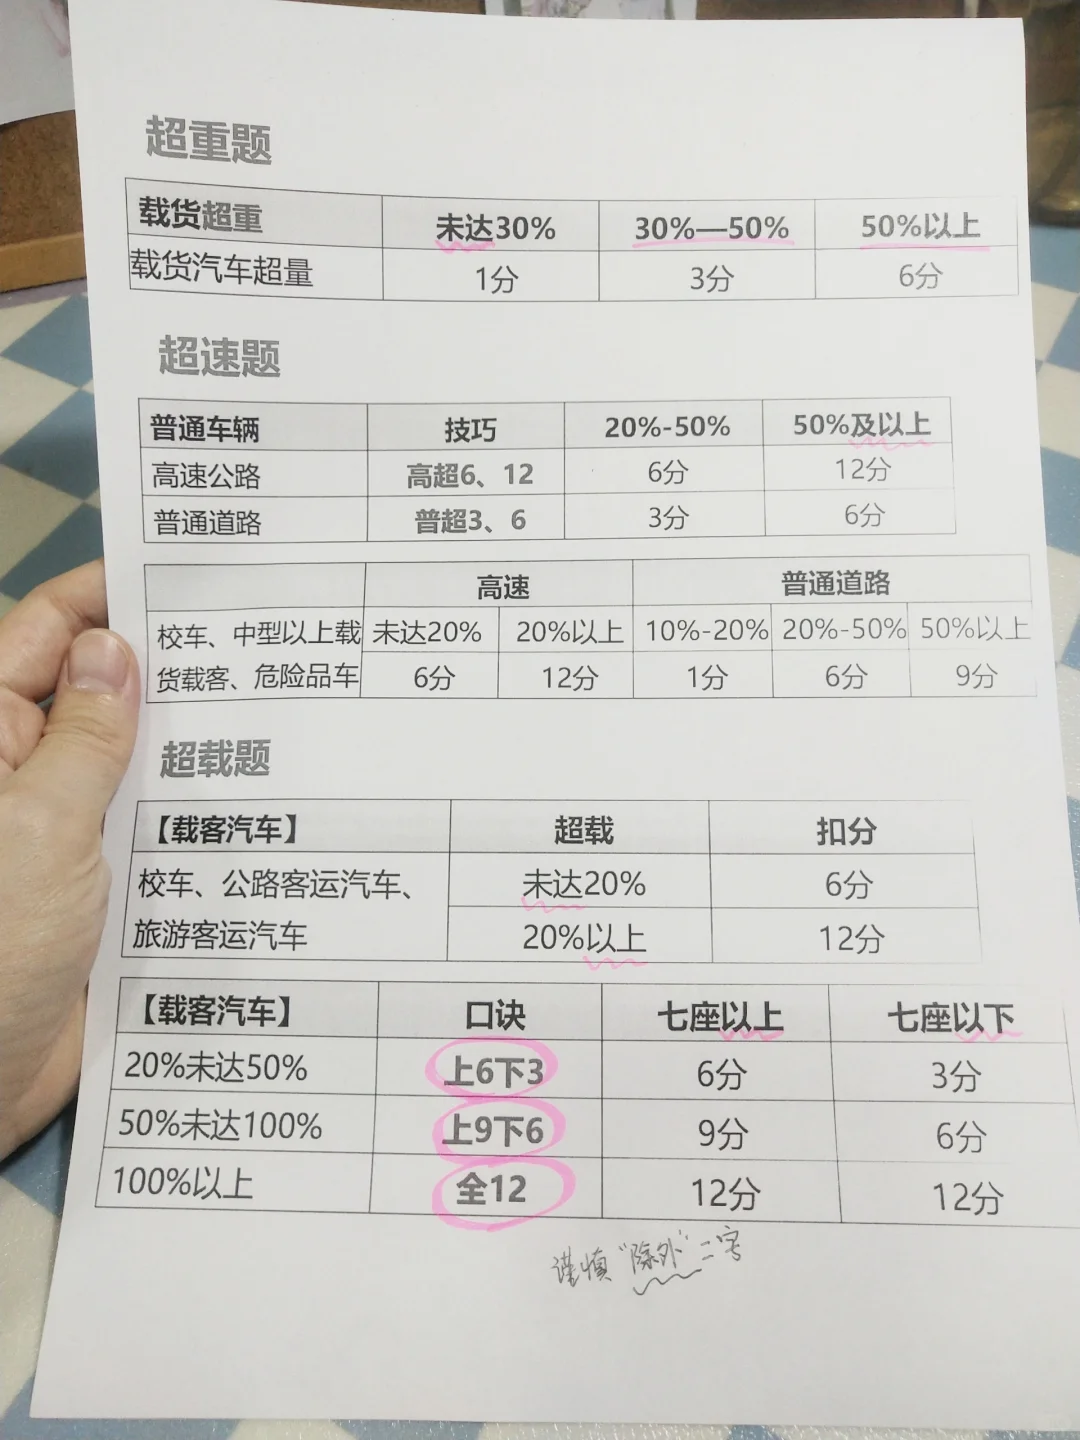 超重题
载货超重 未达30% 30%—50% 50%以上
载货汽车超量 1分 3分 6分
超速题
普通车辆 技巧 20%-50% 50%及以上
高速公路 高超6、12 6分 12分
普通道路 普超3、6 3分 6分
高速 普通道路
校车、中型以上载 未达20% 20%以上 10%-20% 20%-50% 50%以上
货载客、危险品车 6分 12分 1分 6分 9分
超载题
【载客汽车】 超载 扣分
校车、公路客运汽车、 未达20% 6分
旅游客运汽车 20%以上 12分
【载客汽车】 口诀 七座以上 七座以下
20%未达50% 上6下3 6分 3分
50%未达100% 上9下6 9分 6分
100%以上 全12 12分 12分
谨慎“除外”二字